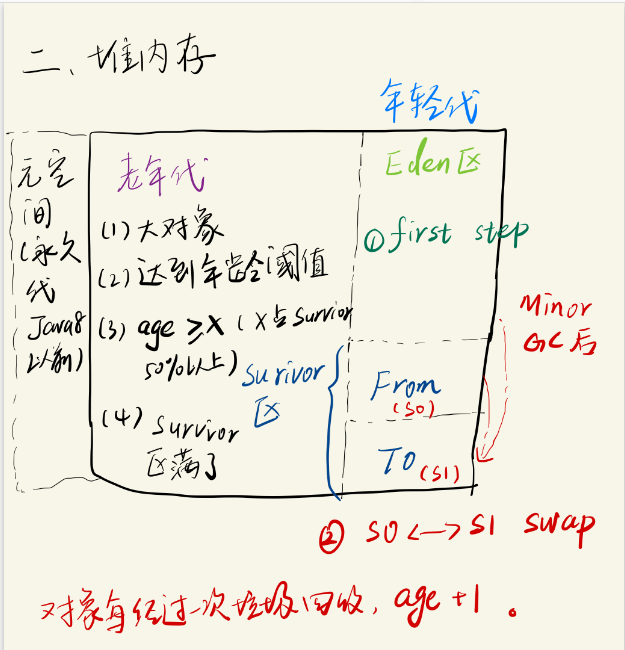 二、堆内存
年轻代
元空
间
(永久
代
Java8
以前)
老年代
(1) 大对象
(2) 达到年龄阈值
(3) age ≥X (X占survior
50%以上)
(4) survior
区满了
Eden区
① first step
Surivor
区
From
(S0)
To (S1)
Minor
GC后
② S0 <—> S1 swap
对象每经过一次垃圾回收, age +1 。